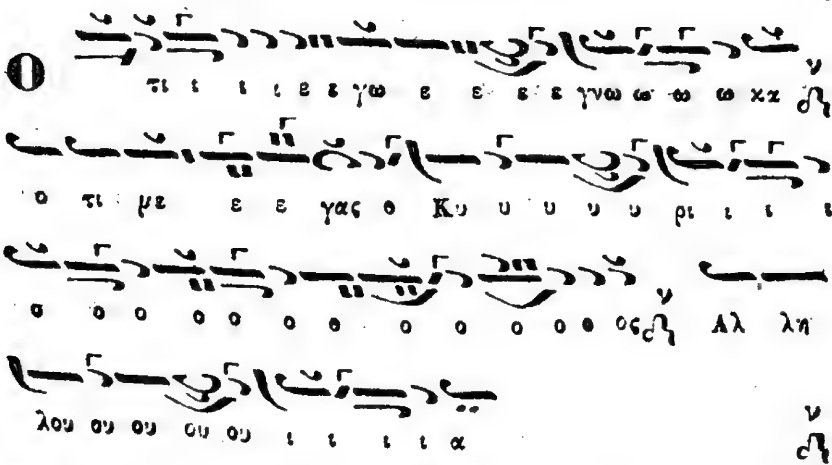 Ο τι ι ι ι ε ε γω ε ε ε ε γνω ω ω ω κα ν
ο τι με ε ε γας ο Κυ υ υ υ υ ρι ι ι ι
ο ο ο ο ο ο ο ο ο ο ο ο ος ν Αλ λη
λου ου ου ου ου ι ι ι ι α ν